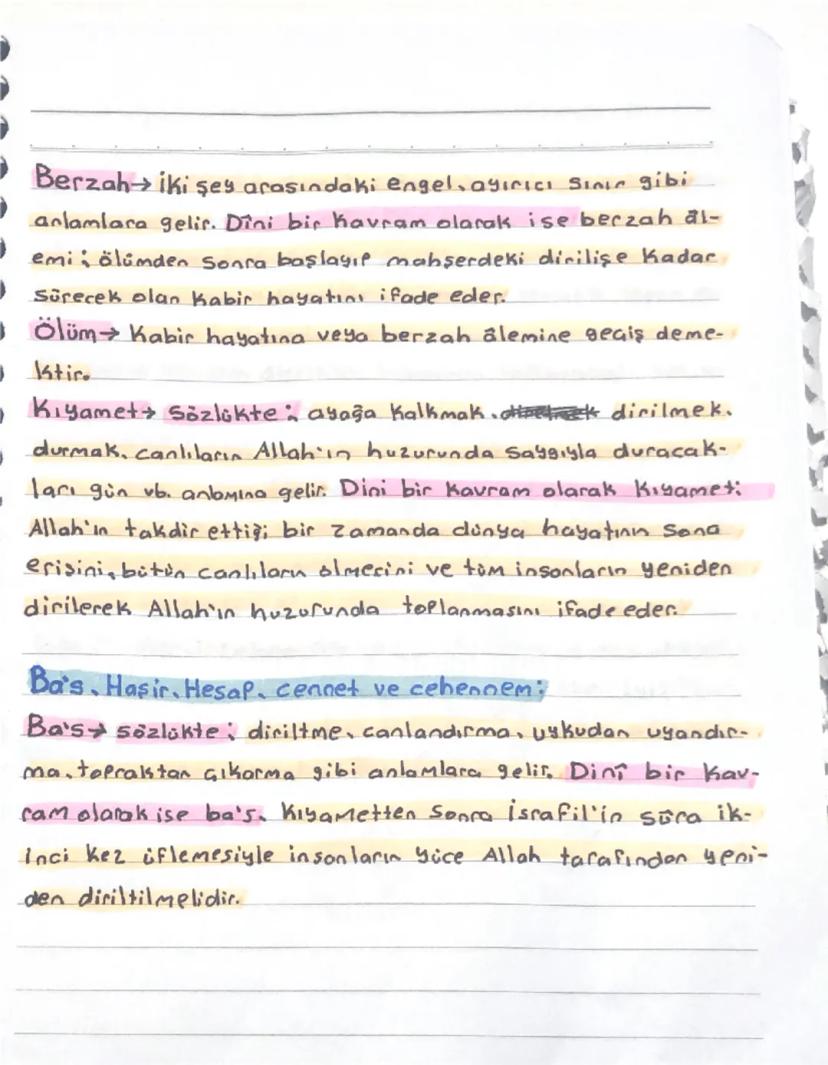 Berzah→ İki şey arasındaki engel, ayırıcı sınır gibi
anlamlara gelir. Dîni bir kavram olarak ise berzah âl-
emi; ölümden sonra başlayıp mahşerdeki dirilişe kadar
sürecek olan kabir hayatını ifade eder.
Ölüm→ Kabir hayatına veya berzah âlemine geçiş deme-
ktir.
Kıyamet→ sözlükte; ayağa kalkmak, dirilmek,
durmak, canlıların Allah'ın huzurunda saygıyla duracak-
ları gün vb. anlamına gelir. Dini bir kavram olarak kıyamet;
Allah'ın takdir ettiği bir zamanda dünya hayatının sona
erişini, bütün canlıların ölmesini ve tüm insanların yeniden
dirilerek Allah'ın huzurunda toplanmasını ifade eder.
Ba's, Haşir, Hesap, cennet ve cehennem:
Ba's→ sözlükte; diriltme, canlandırma, uykudan uyandır-
ma, topraktan çıkarma gibi anlamlara gelir. Dinî bir kav-
ram olarak ise ba's, kıyametten sonra İsrafil'in sûra ik-
inci kez üflemesiyle insanların yüce Allah tarafından yeni-
den diriltilmelidir.